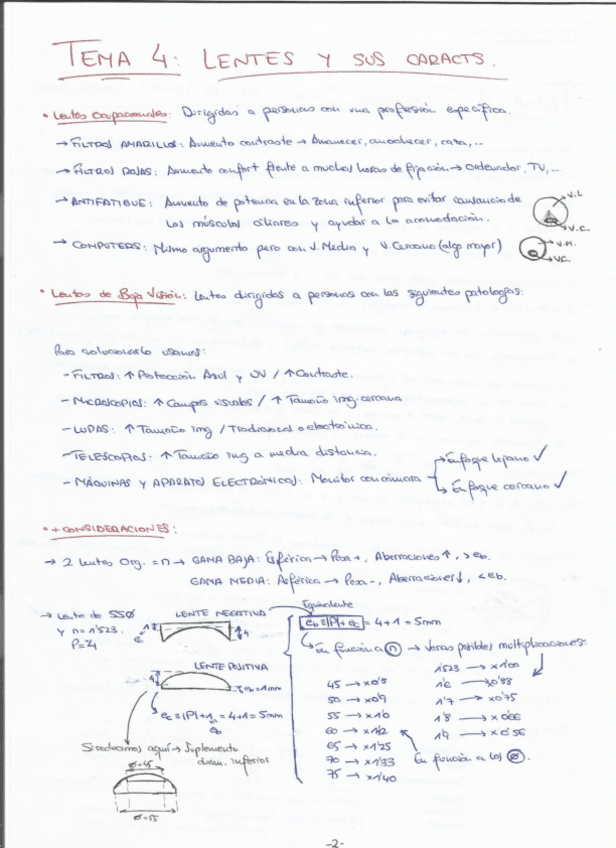 TEMA 4: LENTES Y SUS CARACTS.
• Lentes Ocupacionales: Dirigidas a personas con una profesión específica.
→ FILTROS AMARILLOS: Aumento contraste → Amanecer, anochecer, caza,...
→ FILTROS ROJAS: Aumento confort frente a muchas horas de fijación → Ordenador, TV,...
→ ANTIFATIGUE: Aumento de potencia en la zona inferior para evitar cansancio de
los músculos ciliares y ayudar a la acomodación.
V.L.
V.C.
→ COMPUTERS: Mismo argumento pero con V. Media y V. Cercana (algo mayor)
V.M.
V.C.
• Lentes de Baja Visión: Lentes dirigidas a personas con las siguientes patologías:
Para solucionarlo usamos:
- FILTROS: ↑ Protección Azul y UV / ↑ Contraste.
- MICROSCOPIOS: ↑ Campos visuales / ↑ Tamaño img. cercana
- LUPAS: ↑ Tamaño img / Tradicional o electrónica.
- TELESCOPIOS: ↑ Tamaño img a media distancia.
- MÁQUINAS Y APARATOS ELECTRÓNICOS: Monitor con cámara
→ Enfoque lejano ✓
→ Enfoque cercano ✓
• + CONSIDERACIONES:
→ 2 lentes Org. = n → GAMA BAJA: Esférica → Pesa +, Aberraciones ↑, > eb.
GAMA MEDIA: Asférica → Pesa -, Aberraciones ↓, < eb.
→ Lente de 55Ø
y n = 1'523.
LENTE NEGATIVA
1
4
Equivalente
= 4+1 = 5mm
En función a n → Varias posibles multiplicaciones:
LENTE POSITIVA
4
= 1mm
ec = |P| + = 4+1 = 5mm
eb
45 → x0'8
50 → x0'9
55 → x1'0
60 → x1'12
65 → x1'25
70 → x1'33
75 → x1'40
1'523 → x1'00
1'6 → x0'88
1'7 → x0'75
1'8 → x0'66
1'9 → x0'56
En función a los Ø.
Si reducimos aquí → Suplemento
diám. inferiores
Ø=45
Ø=55
-2-